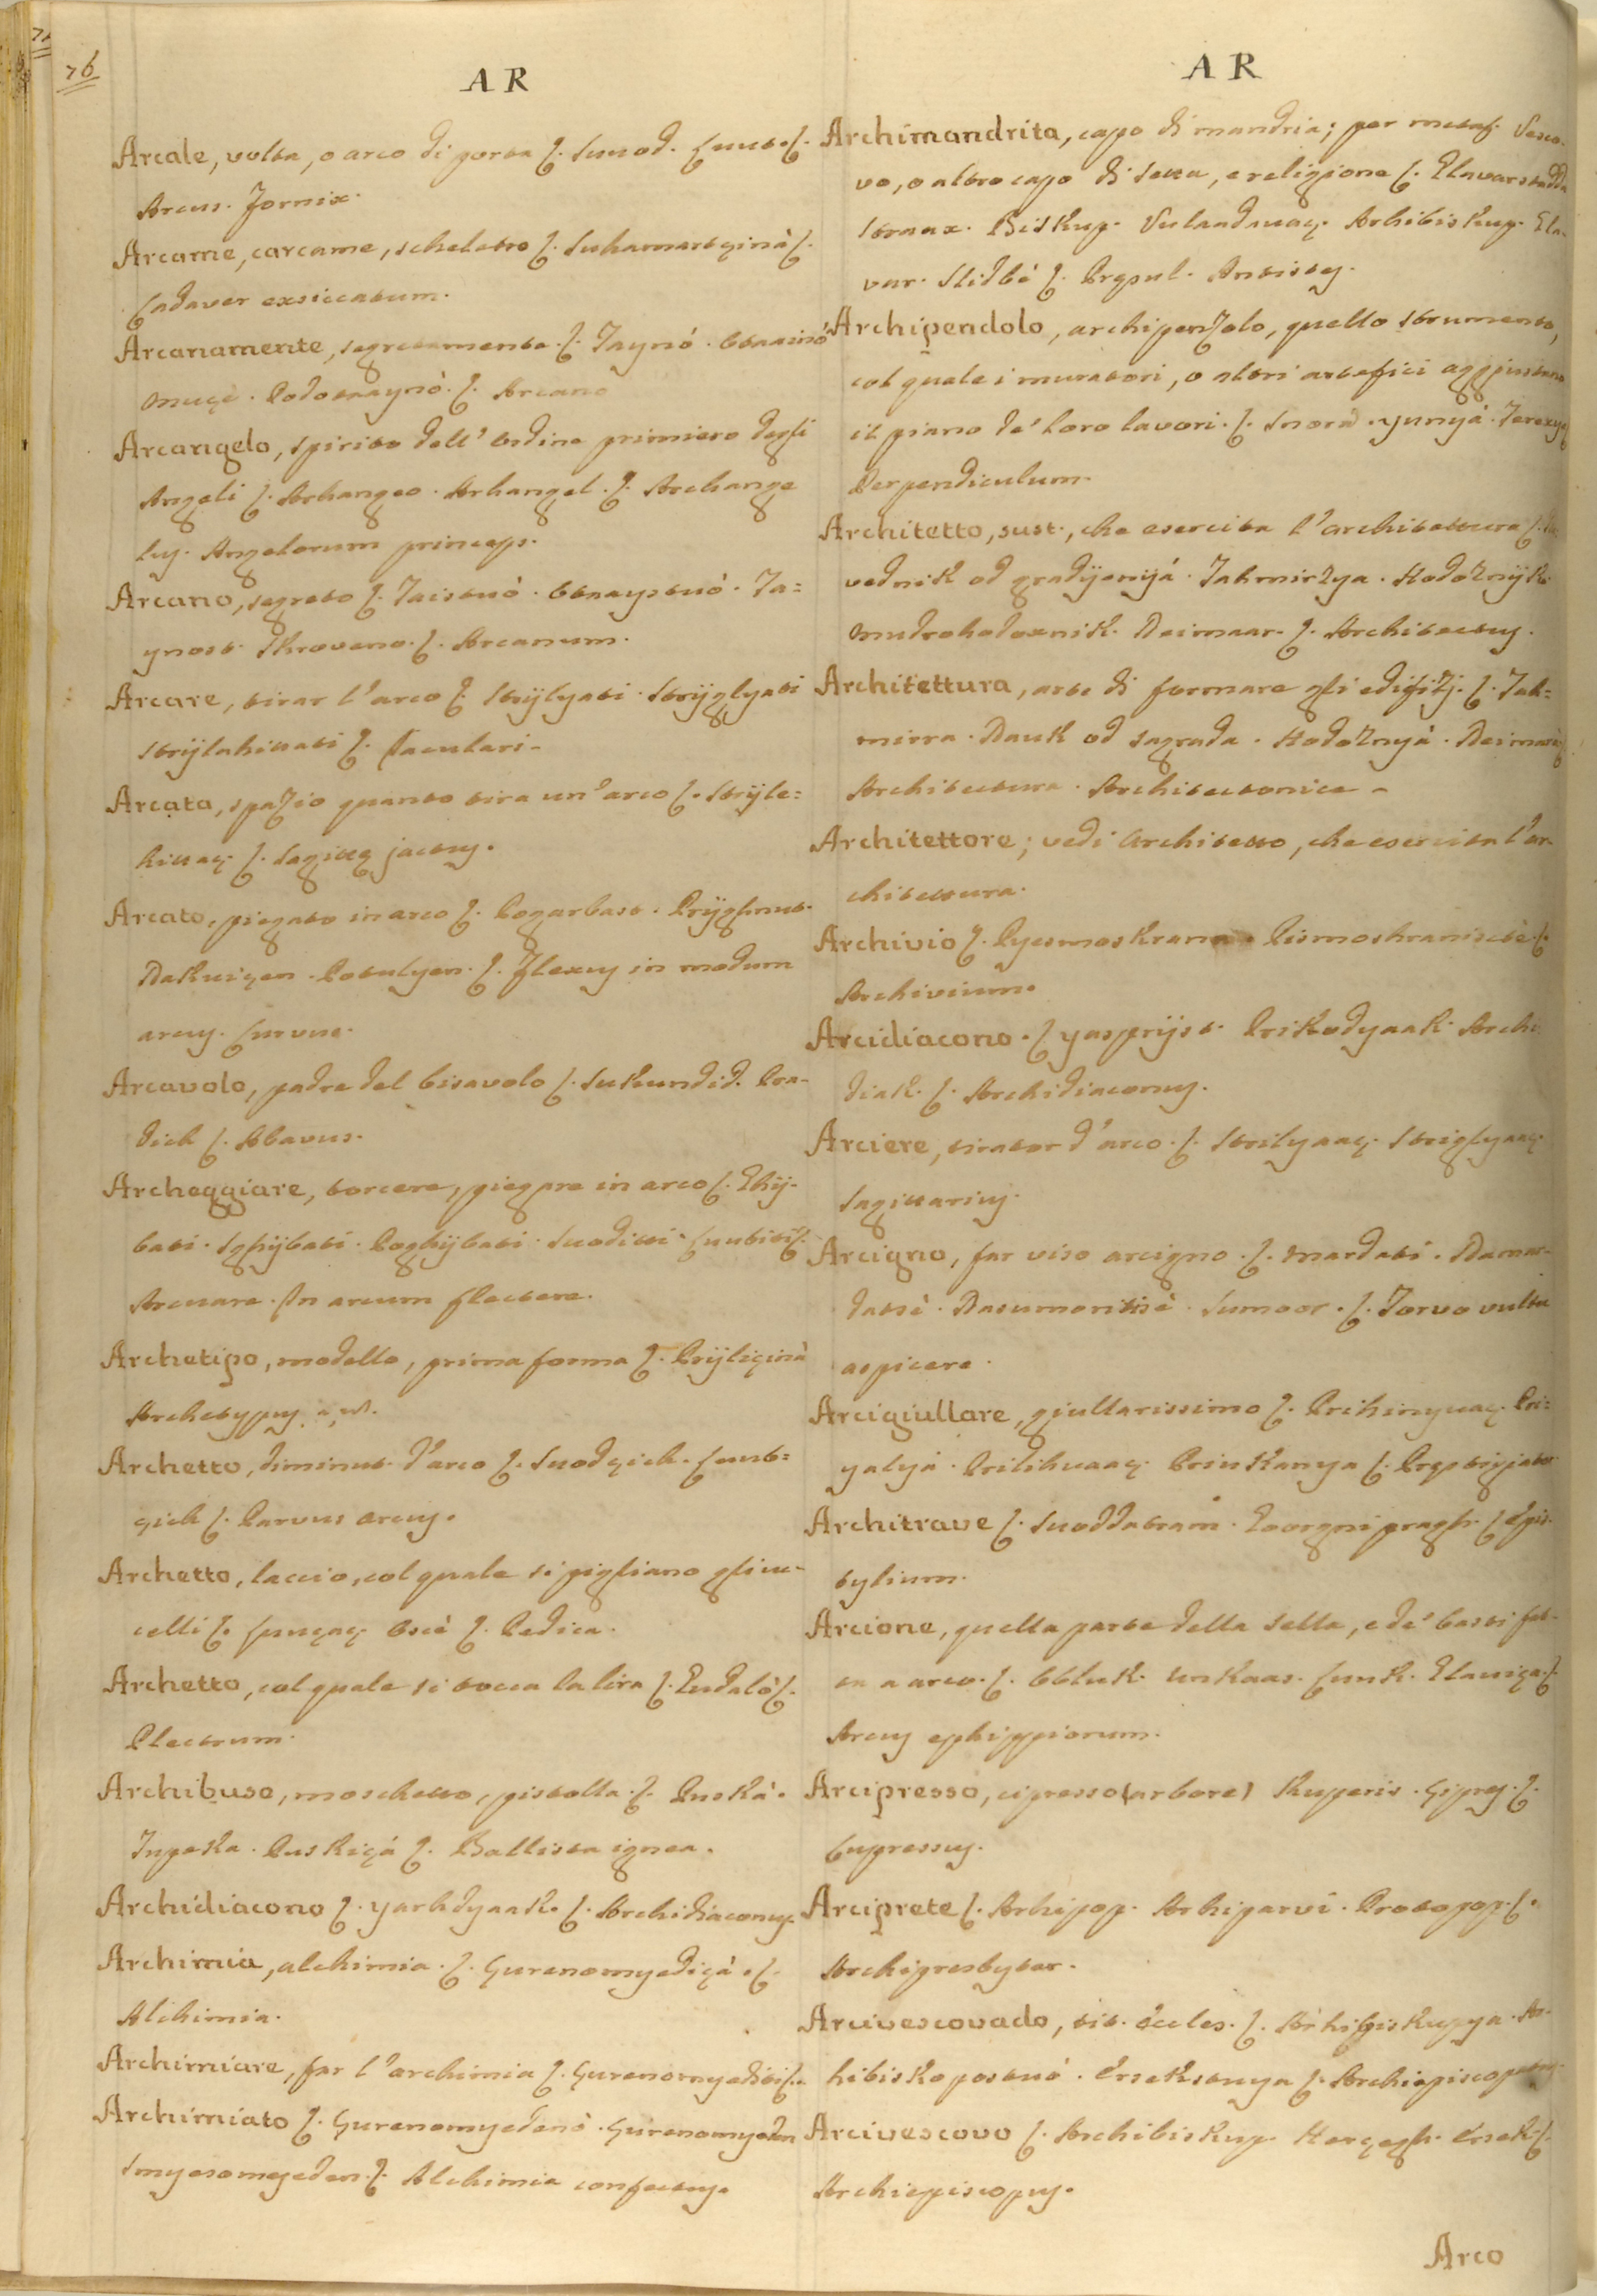 76
AR
Arcale, volta, o arco di porta ſ. Suuod. Cuut. ſ.
Arcus. Fornix.
Arcame, carcame, scheletro ſ. Suhamartçinà ſ.
Cadaver exsiccatum.
Arcanamente, segretamente. ſ. Taynó. Otaainó
muçe. Podotaaynò. ſ. Arcano
Arcangelo, spirito dell' Ordine primiero degli
Angeli ſ. Arhangeo. Arhangel. ſ. Archange
lus. Angelorum princeps.
Arcano, segreto ſ. Taistuó. Otaaystuó. Ta=
ynost. Skroveno. ſ. Arcanum.
Arcare, tirar l'arco ſ. Strÿlyati. Strÿglyati
Strÿlahittati ſ. Jaculari.
Arcata, spazio quanto tira un' arco ſ. Strÿle=
hittaç ſ. Sagittę jactus.
Arcato, piegato in arco ſ. Pogarbast. Prÿghnut.
Nakuiçen. Potulyen. ſ. Flexus in modum
arcus. Curvus.
Arcavolo, padre del bisavolo ſ. Sukundid. Pra-
dich ſ. Abavus.
Archeggiare, torcere, piegare in arco ſ. Ghÿ-
bati. Sghÿbati. Poghÿbati. Suoditti. Cuutiti ſ.
Arcuare. In arcum flectere.
Archetipo, modello, prima forma ſ. Prÿliçinà
Archetypus, a, um.
Archetto, diminut. d'arco ſ. Suodçich. Cuut=
çich ſ. Parvus arcus.
Archetto, laccio, col quale si pigliano gli uc-
celli ſ. Cpuçaç Oscè ſ. Pedica.
Archetto, col quale si tocca la lira ſ. Gudalò ſ.
Plectrum.
Archibuso, moschetto, pistolla. ſ. Puskà.
Tupeka. Puskiçà ſ. Ballista ignea.
Archidiacono ſ. yarhdyaak. ſ. Archidiaconus.
Archimia, alchimia. ſ. Gurenomyediçà. ſ.
Alchimia.
Archimiare, far l'archimia ſ. Gurenomyediti ſ.
Archimiato ſ. Gurenomyedenò. Gurenomyeden
Smyesomyeden. ſ. Alchimia confectus.
AR
Archimandrita, capo di mandria; per metaf. Vesco-
vo, o altro capo di setta, e religione ſ. Glavarstadda
Straax. Biskup. Vulaadauaç. Arhibiskup. Gla-
var. Slidbè ſ. Pręsul. Antistes.
Archipendolo, archipenzolo, quello strumento,
col quale i muratori, o altri artefici aggiustano
il piano de' loro lavori. ſ. Snora. yunyà.
Perpendiculum.
Architetto, sust., che esercita l'architettura ſ.
vednik od gradÿenyá. Tahmirzya. Hodoznÿk
mudrohodoxnik. Neimaar. ſ. Architectus.
Architettura, arte di formare gli edifizj. ſ. Tah=
mirra. Nauk od sagrada. Hodoznyà.
Architectura. Architectonice.
Architettore; vedi Architetto, che esercita l'ar-
chitettura.
Archivio ſ. Pyesmoskrana. Pismoshraniscte. ſ.
Archivium.
Arcidiacono. ſ. yasprÿst. Prikodyaak. Archi
diak. ſ. Archidiaconus.
Arciere, tirator d'arco. ſ. Strilyaaç. Striglyaaç.
Sagittarius.
Arcigno, far viso arcigno. ſ. mardati. Namar-
datsè. Nasumoritisè. Sumoor. ſ. Torvo vultu
aspicere.
Arcigiullare, giullarissimo ſ. Prihinyuaç. Pri=
yalyà. Prilihuaaç. Priukanya ſ. Pręstigiator
Architrave ſ. Suoddatram. Goorgni pragh. ſ. Epis-
tylium.
Arcione, quella parte della sella, e de' basti fat-
ta a arco. ſ. Obluk. Unkaas. Cuuk. Glauiça. ſ.
Arcus ephippiorum.
Arcipresso, cipresso (arbore) Kuparis. Cipres. ſ.
Cupressus.
Arciprete ſ. Arhipop. Arhiparvi. Protopop. ſ.
Archipresbyter.
Arcivescovado, tit. Eccles. ſ. Arhibiskupya. Ar-
hibiskopostuó. Ersekstuya ſ. Archiepiscopatus.
Arcivescovo ſ. Archibiskup. Herçegh. Ersek ſ.
Archiepiscopus.
Arco